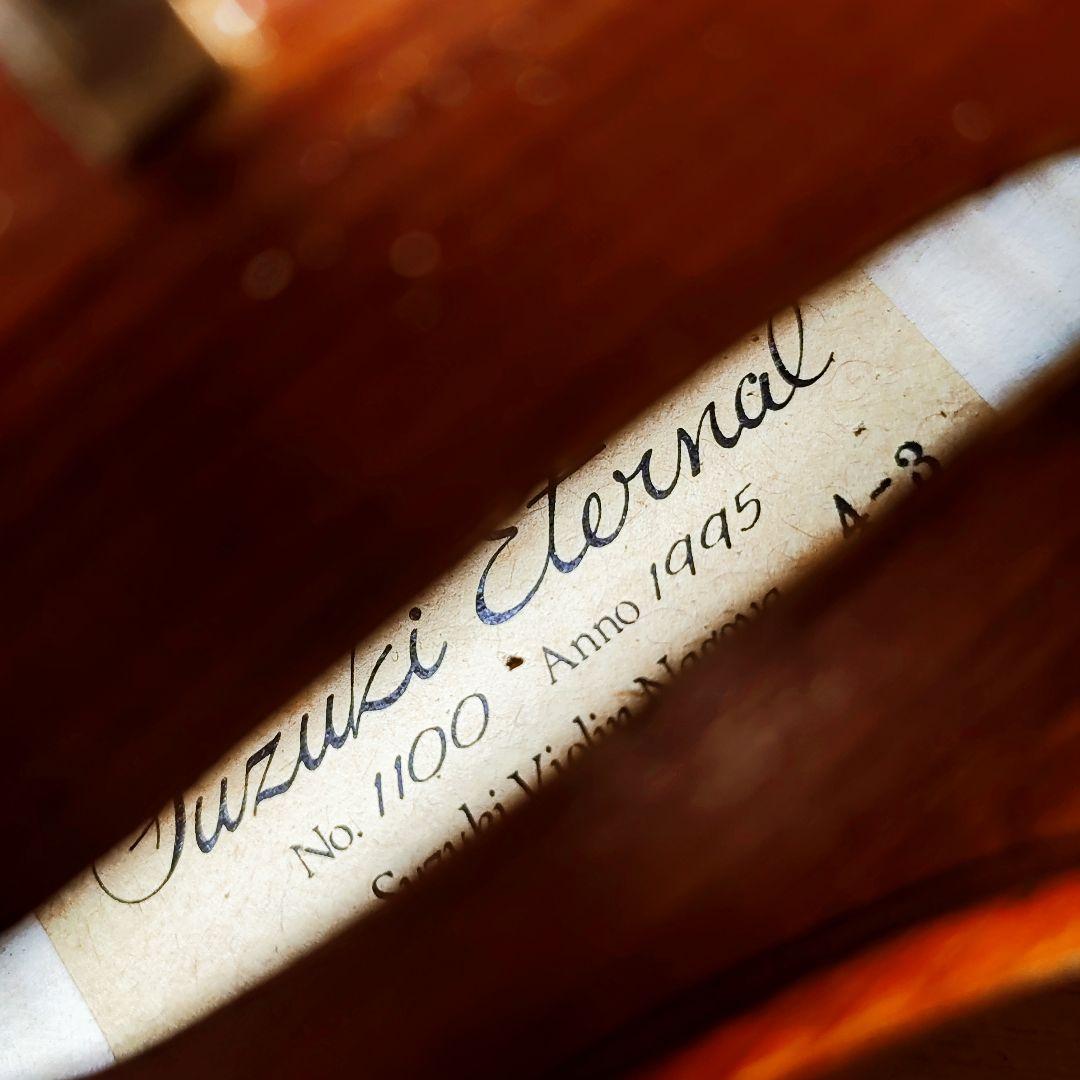 Suzuki Eternal
No. 1100 Anno 1995
Suzuki Violin Nagoya
A-3